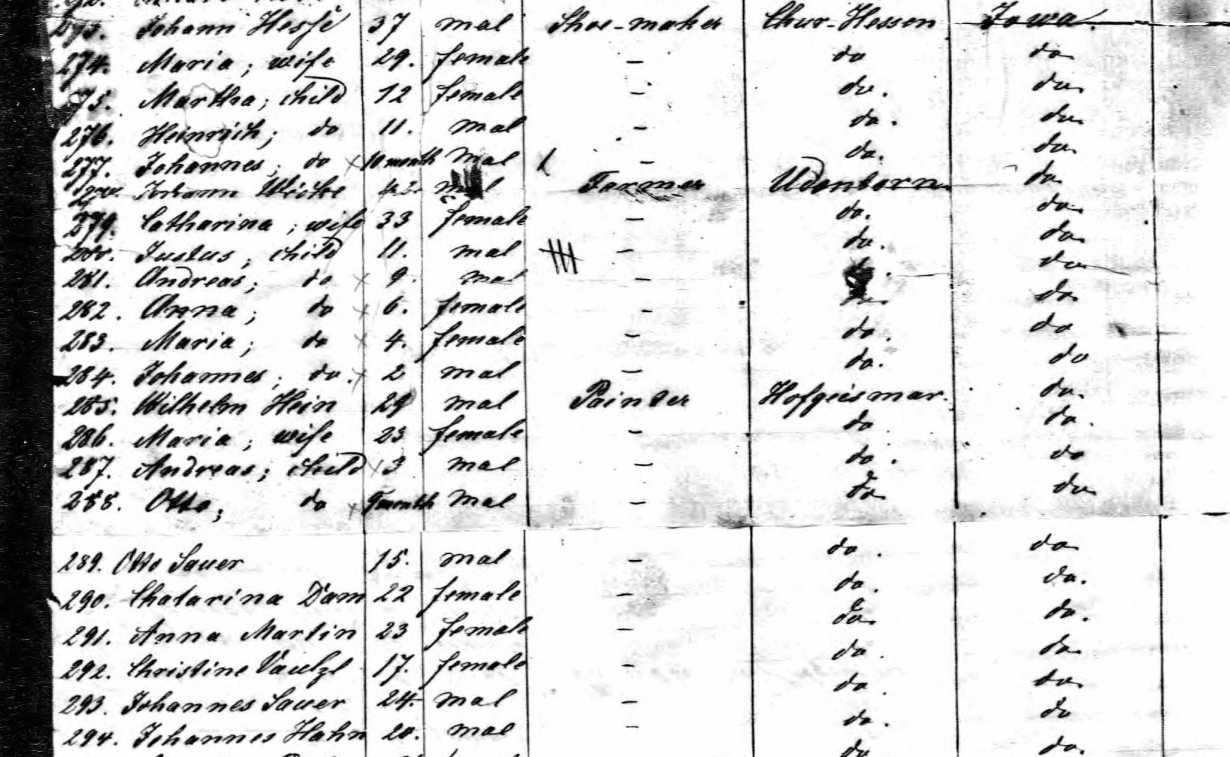 273. Johann Hesse 37 mal Shoe-maker Chur-Hessen Iowa.
274. Maria; wife 29. female - do do
275. Martha; child 12 female - do. do
276. Heinrich; do 11. mal - do. do
277. Johannes; do x 10 month mal - do. do
Johann 42. mal Farmer Udenborn do
279. Catharina; wife 33 female - do. do
280. Justus; child 11. mal - do. do
281. Andreas; do x 9. mal - do. do
282. Anna; do x 6. female - do. do
283. Maria; do x 4. female - do. do
284. Johannes; do. x 2 mal - do. do
285. Wilhelm Hein 29 mal Painter Hofgeismar. do.
286. Maria; wife 23 female - do do.
287. Andreas; child x 3 mal - do. do
288. Otto; do x 9 month mal - do do
289. Otto Sauer 15. mal - do. do
290. Chatarina Dam 22 female - do. do.
291. Anna Martin 23 female - do. do.
292. Christine 17. female - do. do
293. Johannes Sauer 24 mal - do. do
294. Johannes Hahn 20. mal - do. do
do do.